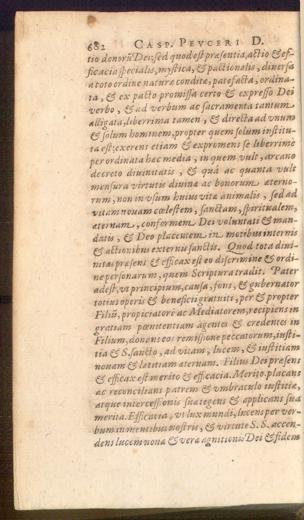 682 CASP. PEVCERI D.
tio donorũ Dei: sed quod est præsentia, actio & ef-
ficacia specialis, mystica, & pactionalis, diuersa
a toto ordine naturæ condito, patefacta, ordina-
ta, & ex pacto promissa certo & expresso Dei
verbo, & ad verbum ac sacramenta tantum
alligata, liberrima tamen, & directa ad vnum
& solum hominem, propter quem solum institu-
ta est; exerens etiam & expromens se liberrime
per ordinata hæc media, in quem vult, arcano
decreto diuinitatis, & quâ ac quanta vult
mensura virtutis diuinæ ac bonorum æterno-
rum, non in vsum huius vitæ animalis, sed ad
vitam nouam cœlestem, sanctam, spiritualem,
æternam, conformem Dei voluntati & man-
datis, & Deo placentem in motibus internis
& actionibus externis sanctis. Quod tota diui-
nitas præsens & efficax est eo discrimine & ordi-
ne personarum, quem Scriptura tradit. Pater
adest, vt principium, causa, fons, & gubernator
totius operis & beneficii gratuiti, per & propter
Filiũ, propiciatorẽ ac Mediatorem, recipiens in
gratiam pœnitentiam agentes & credentes in
Filium, donens eos remissione peccatorum, iusti-
tia & S. sancto, ad vitam, lucem, & iustitiam
nouam & lætitiam æternam. Filius Dei præsens
& efficax est merito & efficacia. Merito, placans
ac reconcilians patrem & vmbraculo iustitiæ,
atque intercessionis suæ tegens & applicans sua
merita. Efficacia, vt lux mundi, lucens per ver-
bum in mentibus nostris, & virtute S. S. accen-
dens lucem noua & vera agnitionis Dei & fidem